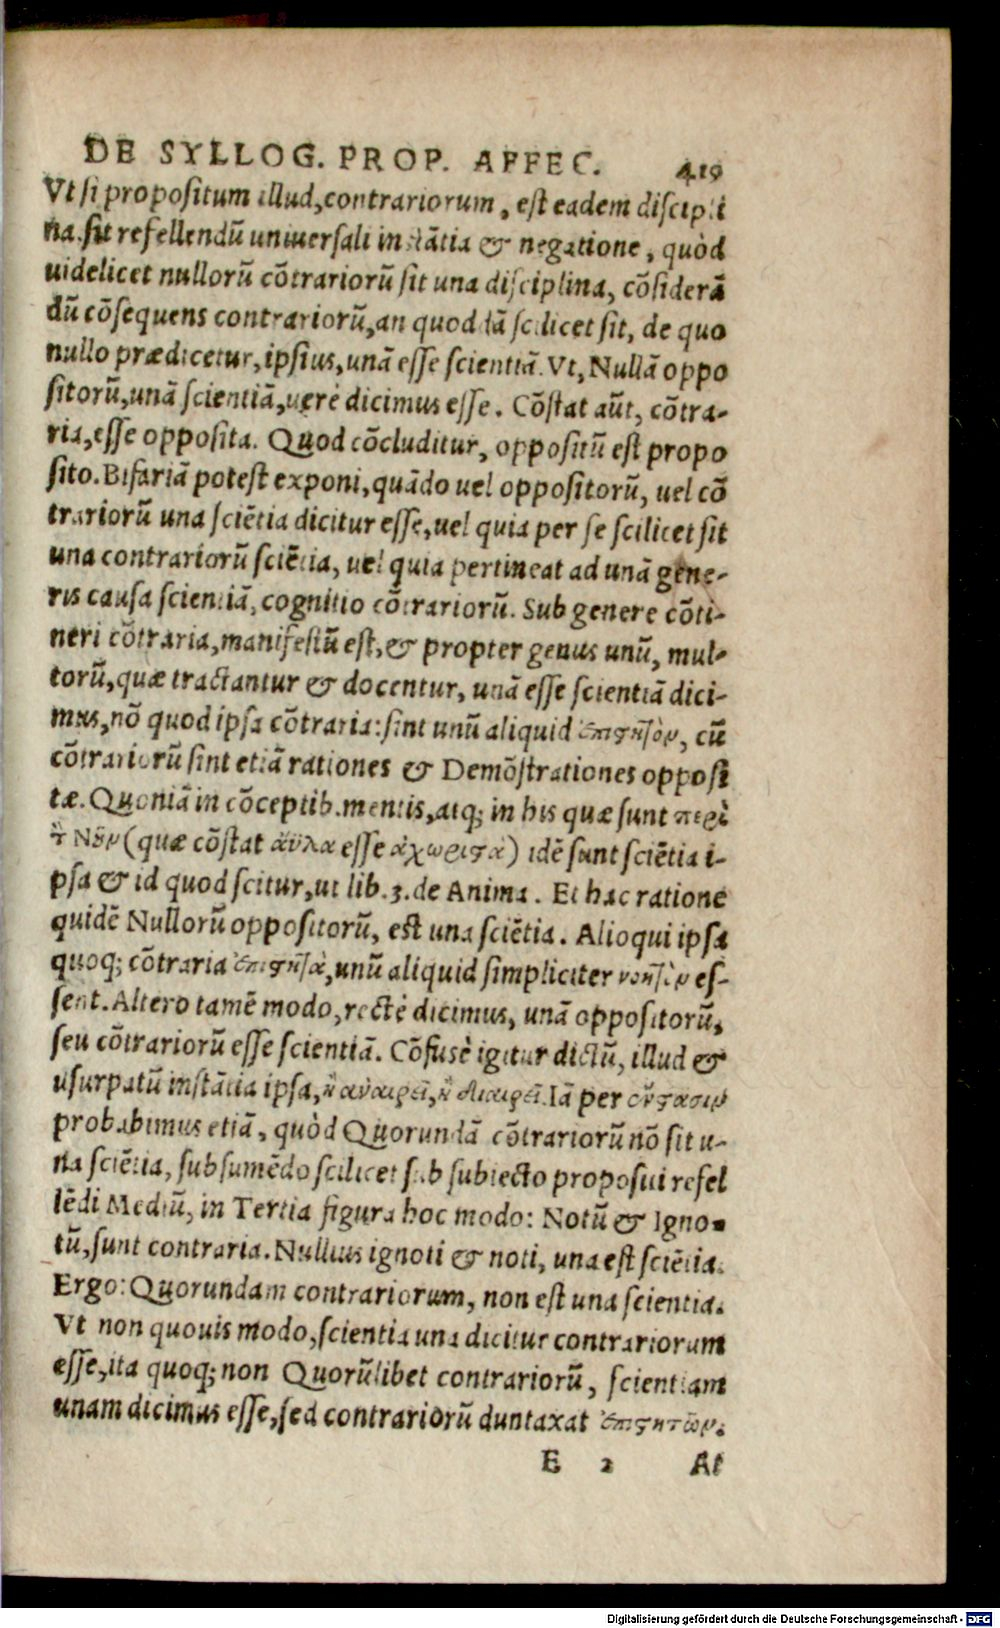 DE SYLLOG. PROP. AFFEC. 419
Vt si propositum illud, contrariorum, est eadem discipli
na. sit refellendũ uniuersali instãtia & negatione, quòd
uidelicet nullorũ cõtrariorũ sit una disciplina, cõsiderã
dũ cõsequens contrariorũ, an quoddã scilicet sit, de quo
nullo prædicetur, ipsius, unã esse scientiã. Vt, Nullã oppo
sitorũ, unã scientiã, uerè dicimus esse. Cõstat aũt, cõtra-
ria, esse opposita. Quod cõcluditur, oppositũ est propo
sito. Bifariã potest exponi, quãdo uel oppositorũ, uel cõ
trariorũ una sciẽtia dicitur esse, uel quia per se scilicet sit
una contrariorũ sciẽtia, uel quia pertineat ad unã gene-
ris causa scientiã, cognitio cõtrariorũ. Sub genere cõti-
neri cõtraria, manifestũ est, & propter genus unũ, mul-
torũ, quæ tractantur & docentur, unã esse scientiã dici-
mus, nõ quod ipsa cõtraria: sint unũ aliquid ἐπιστητὸν, cũ
cõtrariorũ sint etiã rationes & Demõstrationes opposi
tæ. Quoniã in cõceptib. mentis, atq; in his quæ sunt περὶ
τ Νȣ̃ν (quæ cõstat ἄϋλα esse ἀχώριστα) idẽ sunt sciẽtia i-
psa & id quod scitur, ut lib. 3. de Anima. Et hac ratione
quidẽ Nullorũ oppositorũ, est una sciẽtia. Alioqui ipsa
quoq; cõtraria ἐπιστητὰ, unũ aliquid simpliciter νοητὸν es-
sent. Altero tamẽ modo, rectè dicimus, unã oppositorũ,
seu cõtrariorũ esse scientiã. Cõfusè igitur dictũ, illud &
usurpatũ instãtia ipsa, ἢ ἀναιρεῖ, ἢ διαιρεῖ. Iã per ἔνστασιν
probabimus etiã, quòd Quorundã cõtrariorũ nõ sit u-
na sciẽtia, subsumẽdo scilicet sub subiecto proposui refel
lẽdi Mediũ, in Tertia figura hoc modo: Notũ & Igno-
tũ, sunt contraria. Nullius ignoti & noti, una est sciẽtia.
Ergo: Quorundam contrariorum, non est una scientia.
Vt non quouis modo, scientia una dicitur contrariorum
esse, ita quoq; non Quorũlibet contrariorũ, scientiam
unam dicimus esse, sed contrariorũ duntaxat ἐπιστητῶν.
E 2 At
Digitalisierung gefördert durch die Deutsche Forschungsgemeinschaft - DFG